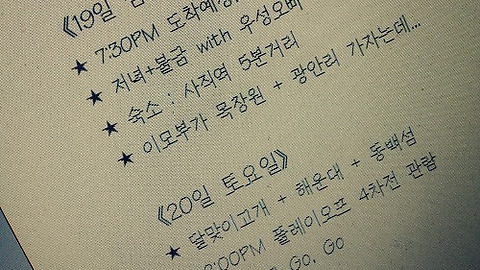 《19일
★ 7:30PM 도착예정
★ 저녁+불금 with 우성오빠
★ 숙소 : 사직역 5분거리
★ 이모부가 목장원 + 광안리 가자는데...
《20일 토요일》
★ 달맞이고개 + 해운대 + 동백섬
:00PM 플레이오프 4차전 관람
Go, Go